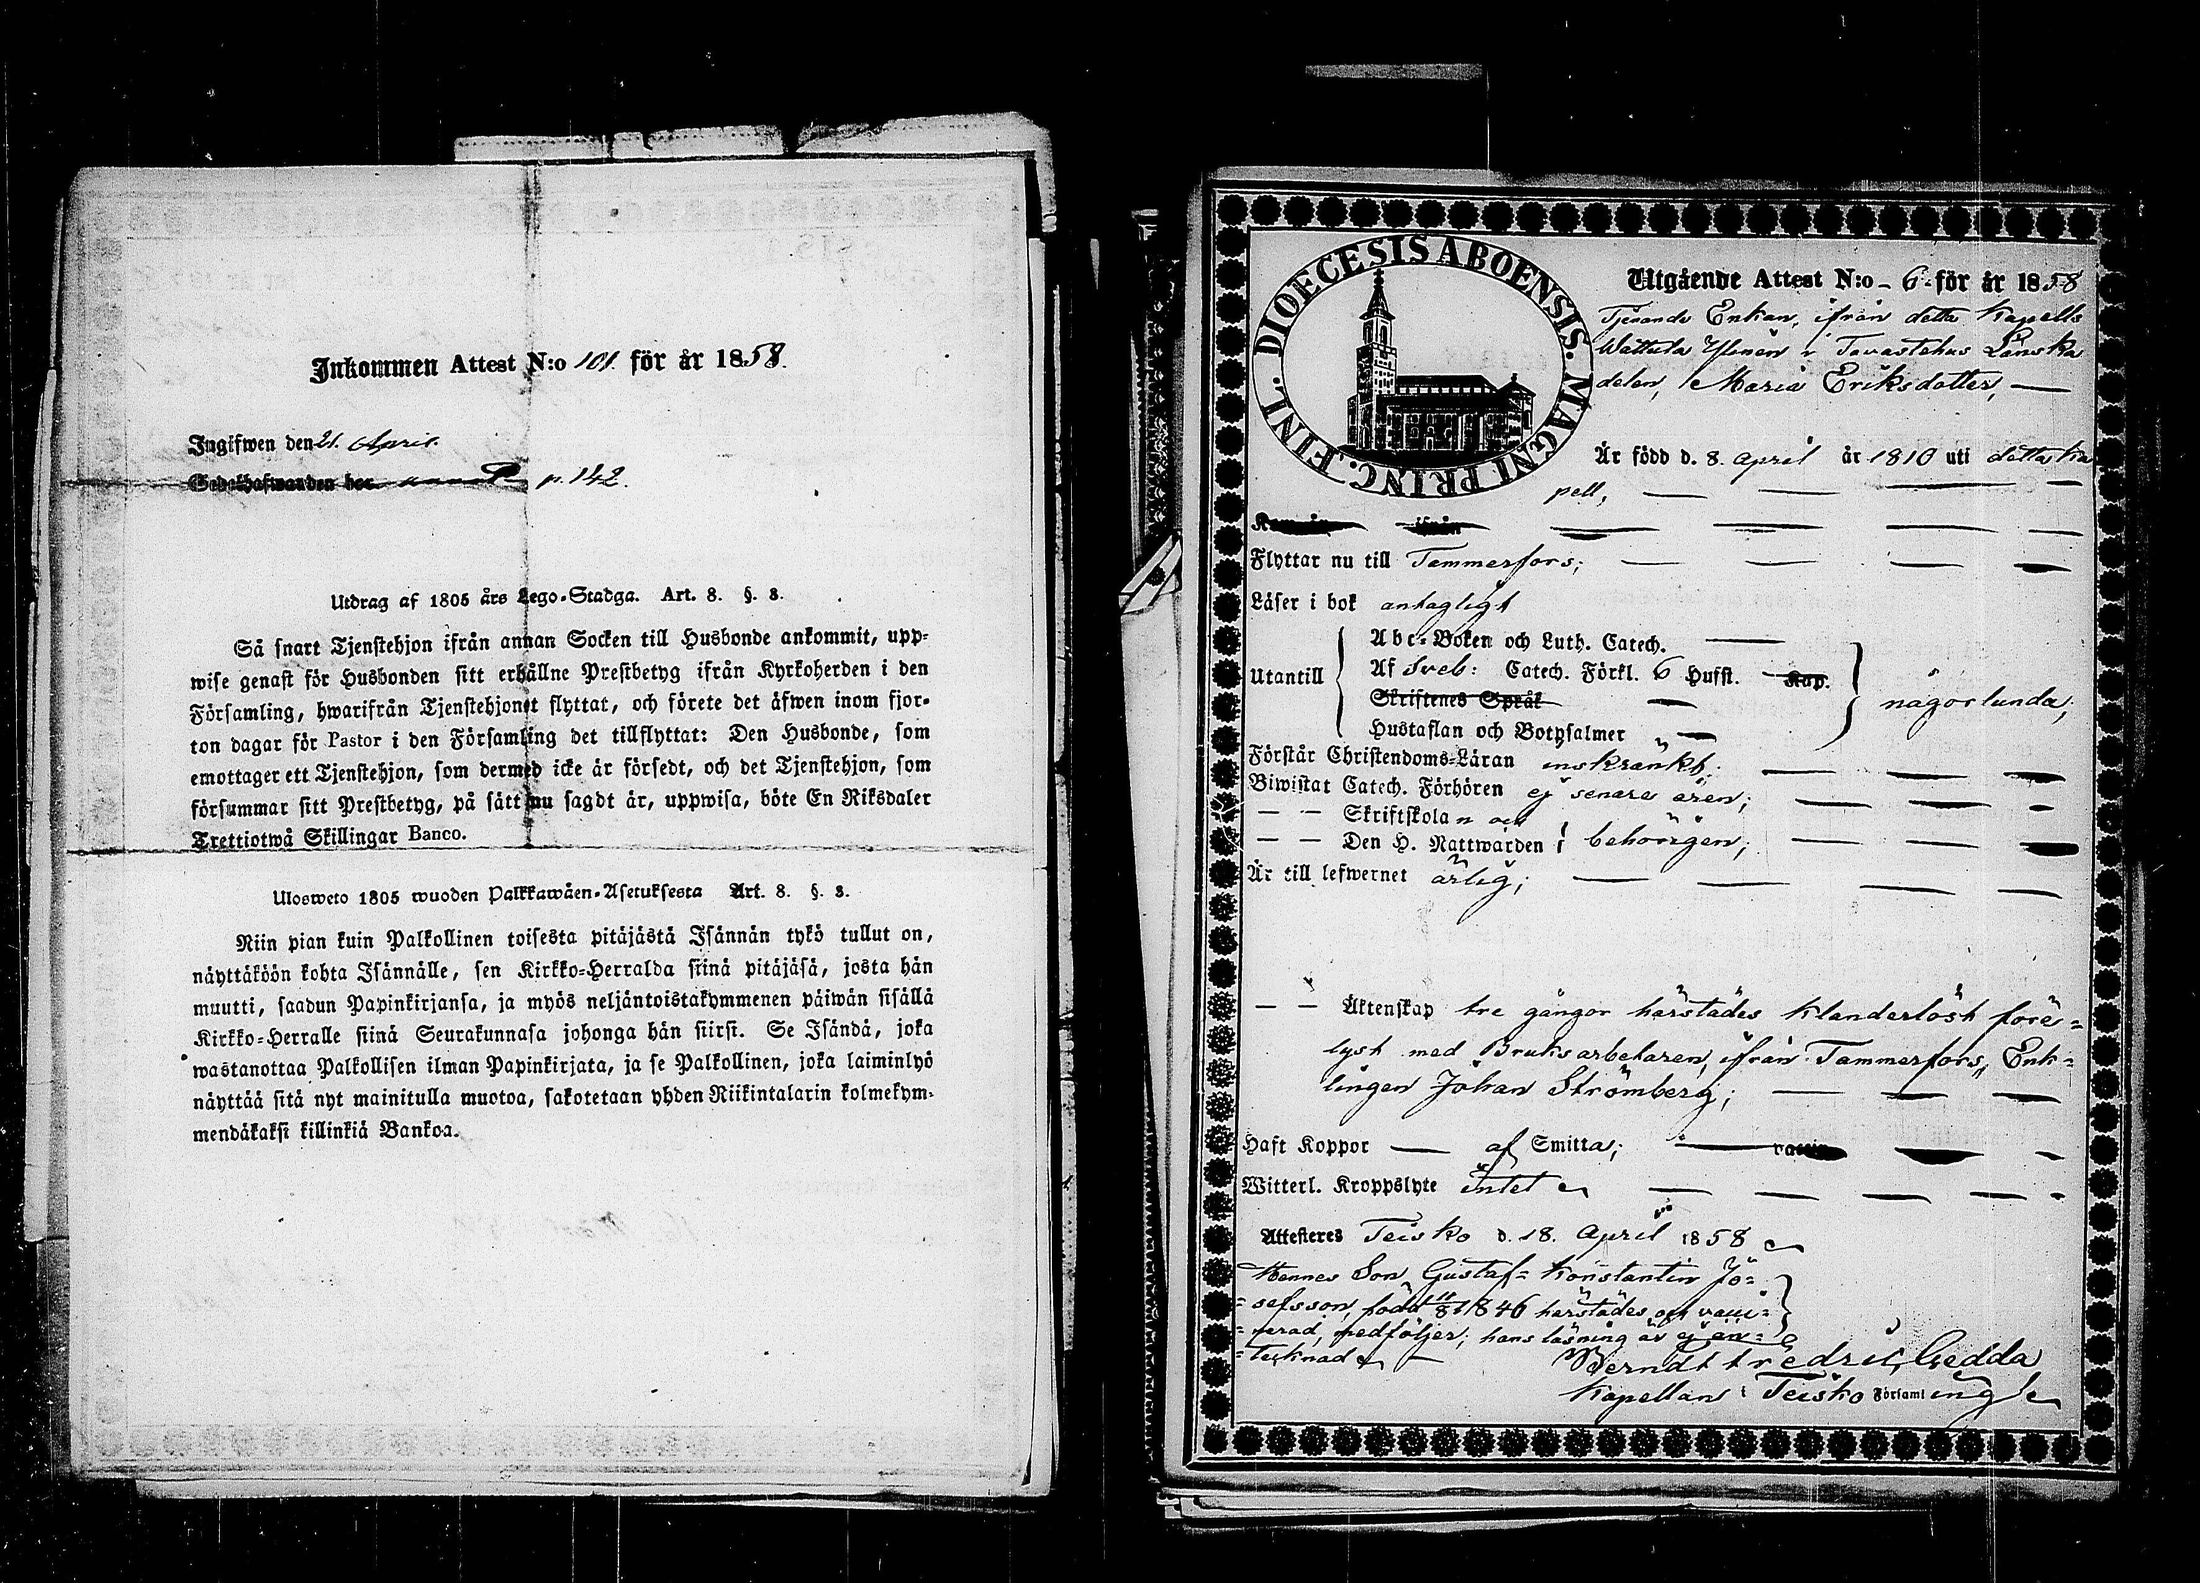 Inkommen Attest N:o 101. för år 1858.
Ingifwen den 21. April.
p. 142.
Utdrag af 1805 års Lego-Stadga. Art. 8. §. 3.
Så snart Tjenstehjon ifrån annan Socken till Husbonde ankommit, upp-
wise genast för Husbonden sitt erhållne Prestbetyg ifrån Kyrkoherden i den
Församling, hwarifrån Tjenstehjonet flyttat, och förete det äfwen inom fjor-
ton dagar för Pastor i den Församling det tillflyttat: Den Husbonde, som
emottager ett Tjenstehjon, som dermed icke är försedt, och det Tjenstehjon, som
försummar sitt Prestbetyg, på sätt nu sagdt är, uppwisa, böte En Riksdaler
Trettiotwå Skillingar Banco.
Ulosweto 1805 wuoden Palkkawäen-Asetuksesta Art. 8. §. 3.
Niin pian kuin Palkollinen toisesta pitäjästä Isännän tykö tullut on,
näyttäköön kohta Isännälle, sen Kirkko-Herralda siinä pitäjäsä, josta hän
muutti, saadun Papinkirjansa, ja myös neljäntoistakymmenen päiwän sisällä
Kirkko-Herralle siinä Seurakunnasa johonga hän siirsi. Se Isändä, joka
wastanottaa Palkollisen ilman Papinkirjata, ja se Palkollinen, joka laiminlyö
näyttää sitä nyt mainitulla muotoa, sakotetaan yhden Riikintalarin kolmekym-
mendäkaksi killinkiä Bankoa.
DIOECESIS ABOENSIS. MAGNI PRINC. FINL.
Utgående Attest N:o 6 för år 1858
Tjenande Enkan, ifrån detta Kapells
Wattula Ylinen i Tavastehus Länska
delen, Maria Eriksdotter,
Är född d. 8. April år 1810 uti detta Ka
pell,
Flyttar nu till Tammerfors;
Läser i bok antagligt
Utantill
Abc-Boken och Luth. Catech.
Af Sveb: Catech. Förkl. 6 Hufst. Kap.
Skriftenes Språk
Hustaflan och Botpsalmer
någorlunda;
Förstår Christendoms-Läran inskränkt;
Biwistat Catech. Förhören ej senare åren;
Skriftskolan och
Den H. Nattwarden i behörigen;
Är till lefwernet ärlig;
Äktenskap tre gångor härstädes klanderlöst före-
lyst med Bruksarbetaren, ifrån Tammerfors, Enk-
lingen Johan Strömberg;
Haft Koppor af Smitta;
Witterl. Kroppslyte intet
Attesteres Teisko d. 18. April 1858
Hennes Son Gustaf Konstantin Jo-
sefsson, född 11/8 1846 härstädes och vacci-
nerad, medföljer; hans läsning är ej an-
tecknad
Berndt Fredric Gedda
Kapellan i Teisko Församling